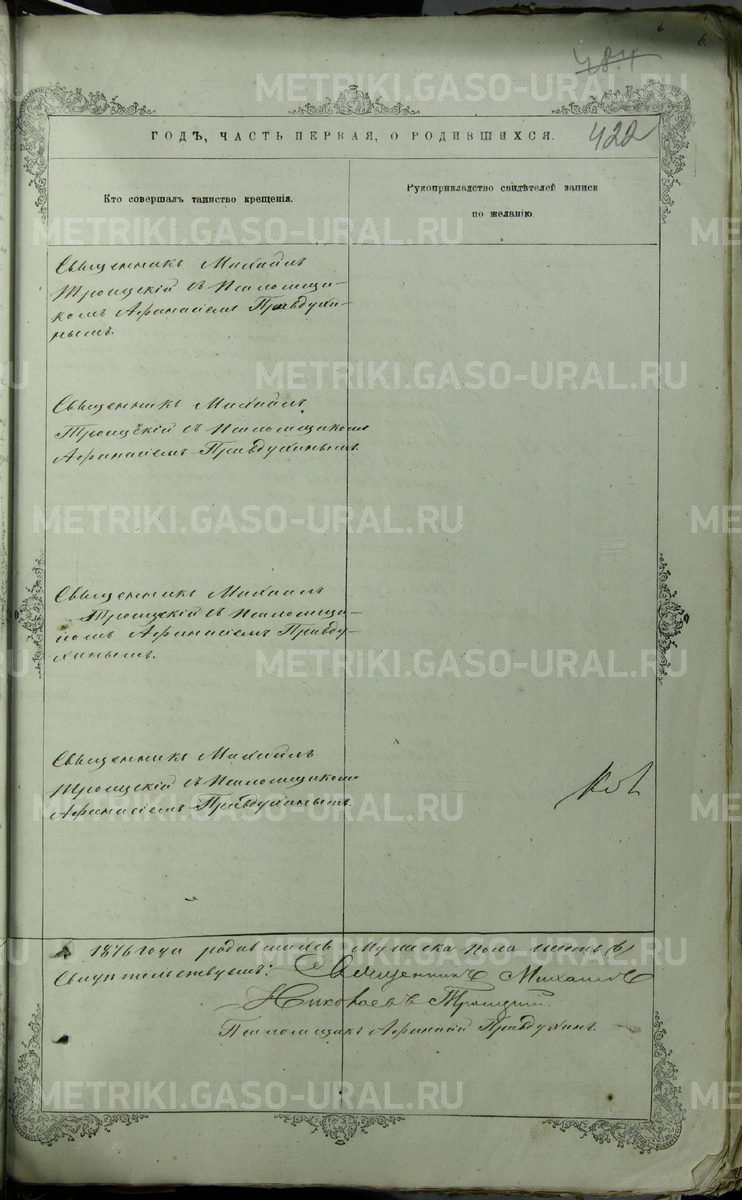 6
6.
484
METRIKI.GASO-URAL.RU METRIKI.GASO-URAL.RU
ГОДЪ, ЧАСТЬ ПЕРВАЯ, О РОДИВШИХСЯ. 422
Кто совершалъ таинство крещенія.
Рукоприкладство свидѣтелей записи
по желанію.
METRIKI.GASO-URAL.RU
Священникъ Михаилъ
Троицкій съ Псаломщи-
комъ Афанасіемъ Правдухи-
нымъ.
METRIKI.GASO-URAL.RU
Священникъ Михаилъ
Троицкій съ Псаломщикомъ
Афанасіемъ Правдухинымъ.
METRIKI.GASO-URAL.RU
Священникъ Михаилъ
Троицкій съ Псаломщи-
комъ Афанасіемъ Правду-
хинымъ.
METRIKI.GASO-URAL.RU
Священникъ Михаилъ
Троицкій съ Псаломщикомъ
Афанасіемъ Правдухинымъ.
METRIKI.GASO-URAL.RU
1876 года родившихся Мужеска пола шесть (6)
Свидетельствуемъ: Священникъ Михаилъ
Николаевъ Троицкій.
Псаломщикъ Афанасій Правдухинъ.
METRIKI.GASO-URAL.RU